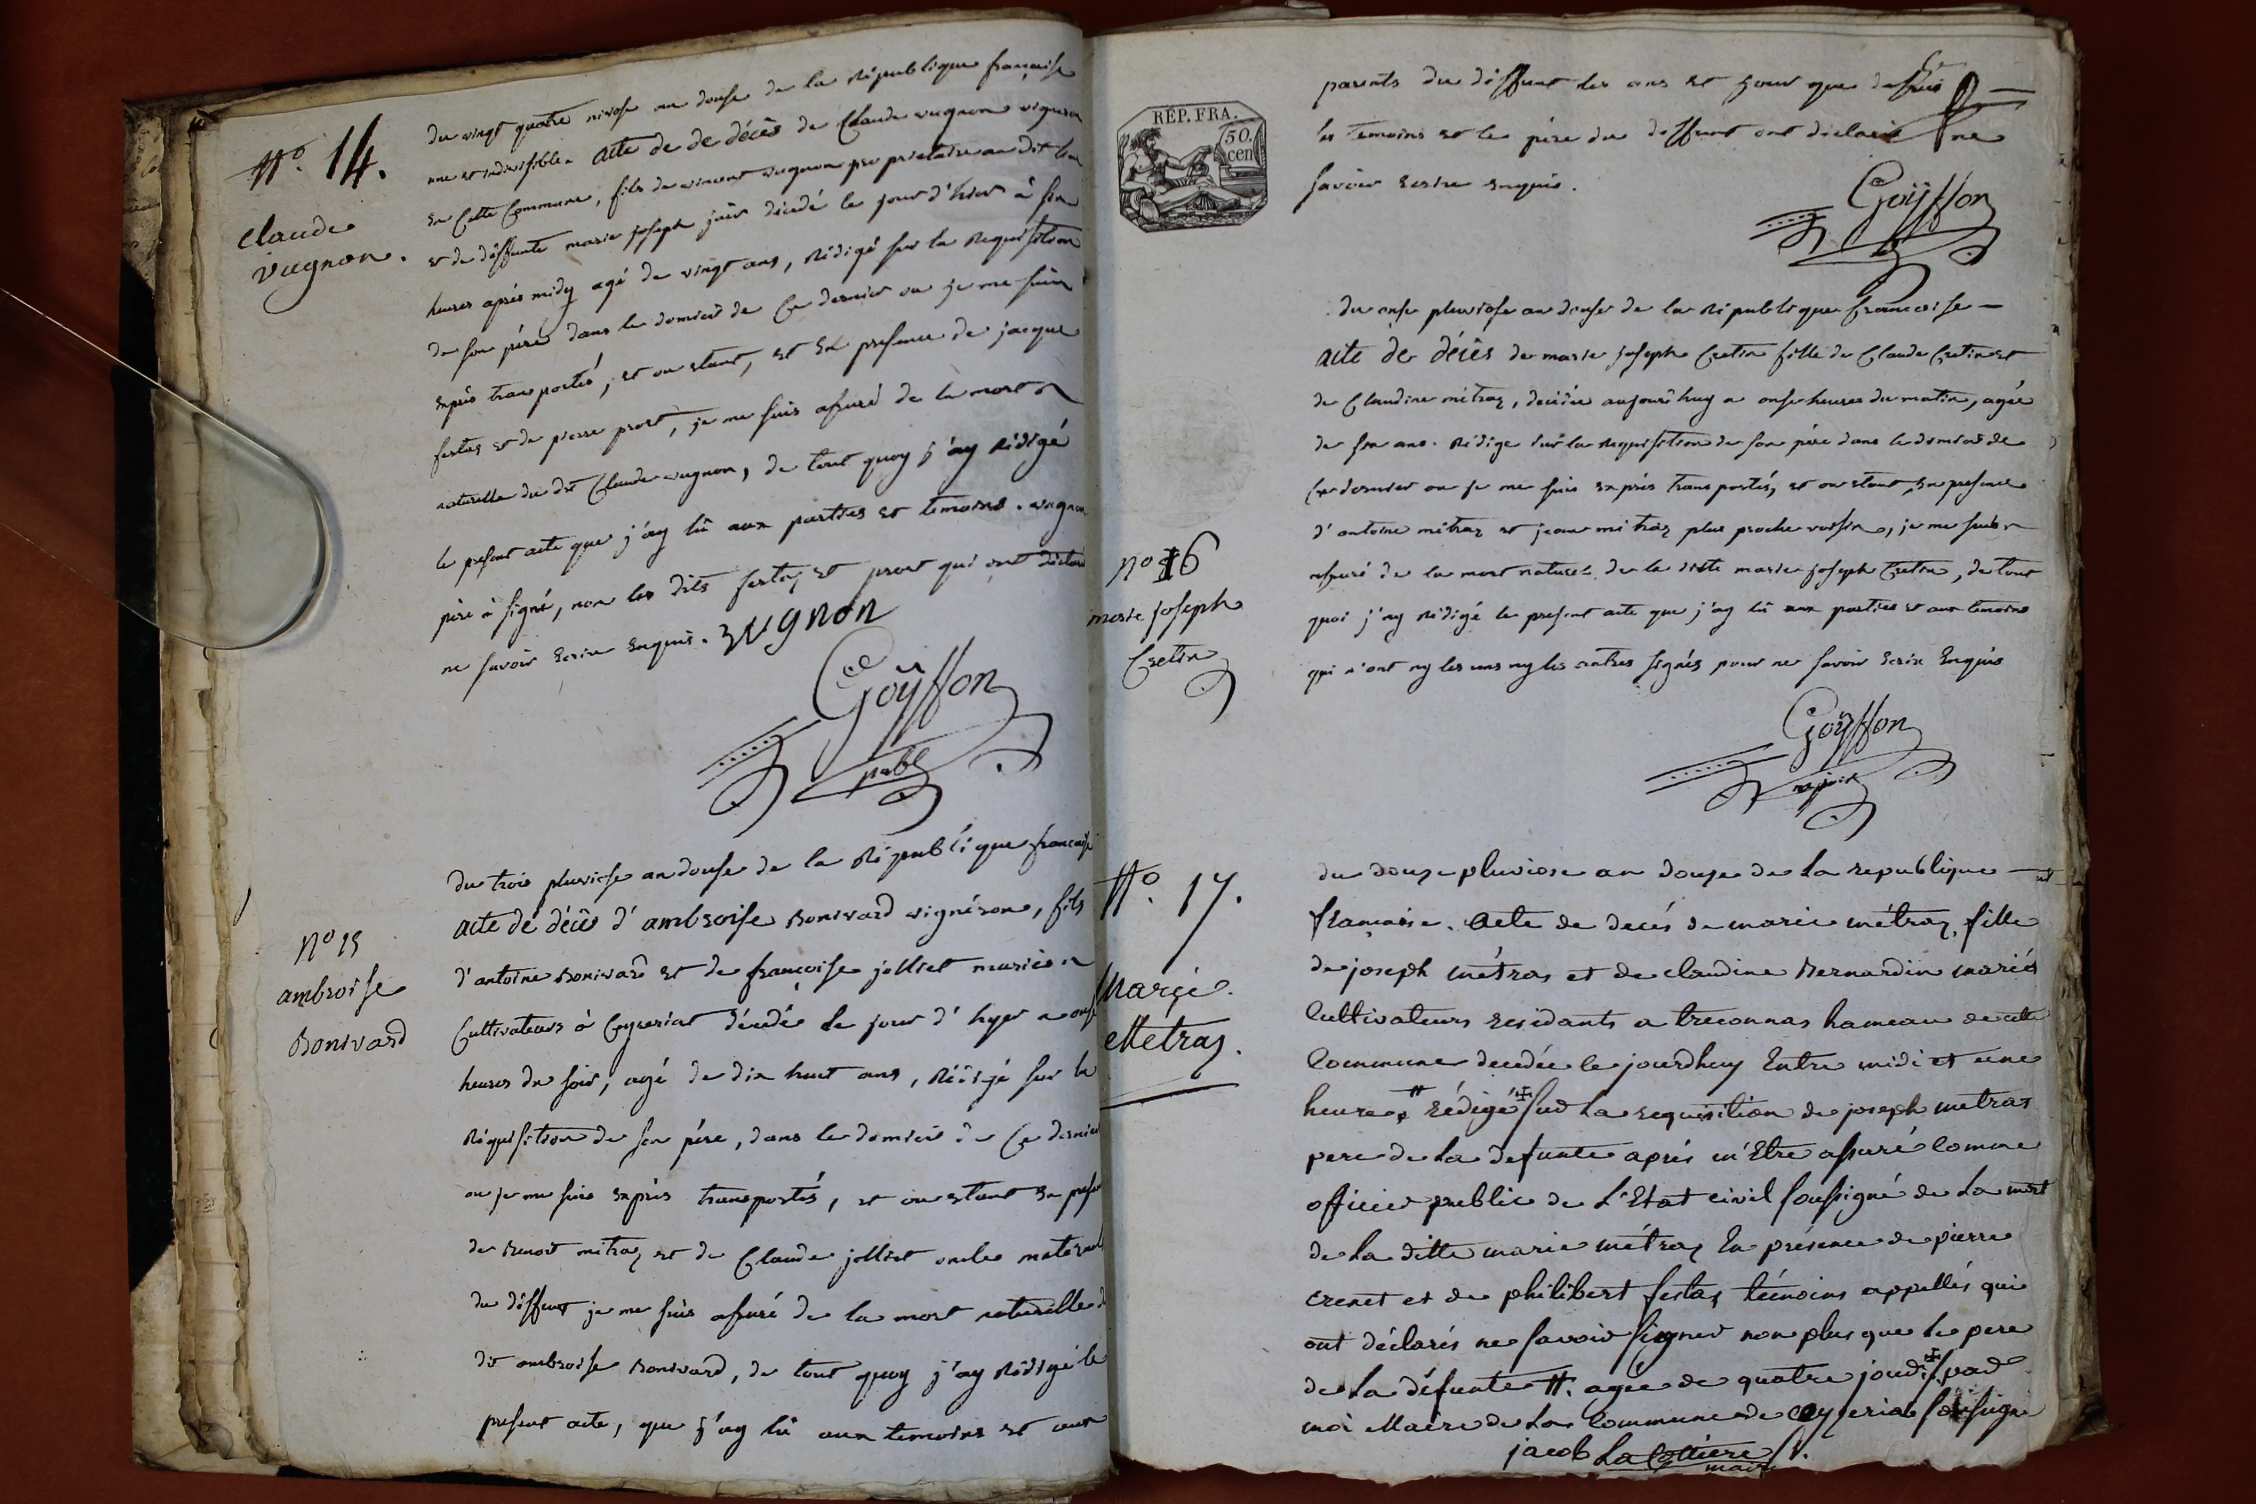 N° 14.
Claude
vugnon.
du vingt quatre nivose an douse de la République française
une et indivisible. acte de de décès de Claude vugnon vigneron
en Cette Commune, fils de vincent vugnon propriétaire au dit lieu
et de déffunte marie joseph décédé le jour d'hier à six
heures après midy agé de vingt ans, Rédigé sur la Requisition
de son père dans le domicil de Ce dernier ou je me suis
exprès transportés, et ou etant, et En presence de jacque
festas et de pierre prost, je me suis assuré de la mort
naturelle du dit Claude vugnon, de tout quoy j'ay Rédigé
le present acte que j'ay lû aux parties et temoins. vugnon
père à signé, non les dits festas et prost qui ont déclaré
ne savoir Ecrire Enquis. vugnon
Goÿffon
pub
N° 15
ambroise
Bonivard
du trois pluviose an douse de la République française
acte de décès d'ambroise Bonivard vignéron, fils
d'antoine Bonivard et de françoise jolliet mariés
Cultivateurs à Ceyseriat décédé le jour d'hyer a onse
heures du soir, agé de dix huit ans, Rédigé sur la
Réquisition de son père, dans le domicil de Ce dernier
ou je me suis exprès transportés, et ou etant En presence
de Benoit métraz et de Claude jolliet oncle maternel
du déffunt je me suis assuré de la mort naturelle du
dit ambroise Bonivard, de tout quoy j'ay Rédigé le
present acte, que j'ay lû aux temoins et aux
RÉP. FRA.
50.
cen
parents du déffunt les ans et jour que dessus
les temoins et le père du deffunt ont déclaré ne
savoir Ecrire enquis.
Goÿffon
N° 16
marie joseph
Cretin
du onse pluviose an douse de la République francoise
acte de décès de marie joseph Cretin fille de Claude Cretin et
de Claudine métraz, décédée aujourd'huy a onse heures du matin, agée
de six ans. Rédigé sur la Requisition de son père dans le domicil de
Ce dernier ou je me suis exprès transportés, et ou etant, En presence
d'antoine métraz et jean métraz plus proche voisin, je me suis
assuré de la mort naturel de la ditte marie joseph Cretin, de tout
quoi j'ay Rédigé le present acte que j'ay lû aux parties et aux temoins
qui n'ont ny les uns ny les autres signés pour ne savoir Ecrire Enquis
Goÿffon
adjoint
N° 17.
Marie
Metraz.
du douze pluviose an douze de la republique
française. acte de decés de marie métraz, fille
de joseph métras et de claudine Bernardin mariés
Cultivateurs residants a treconnas hameau de cette
Commune decedée le jourdhuy Entre midi et une
heure # rédigé sur la requisition de joseph metras
pere de la defunte aprés m'Etre assuré comme
officier public de L'Etat civil soussigné de la mort
de la ditte marie métraz En présence de pierre
crenet et de philibert festaz témoins appellés qui
ont déclarés ne savoir signer non plus que le pere
de la défunte #. agée de quatre jours par
moi Maire de la Commune de Ceyzeriat soussigné
jacob La Cottiere
maire